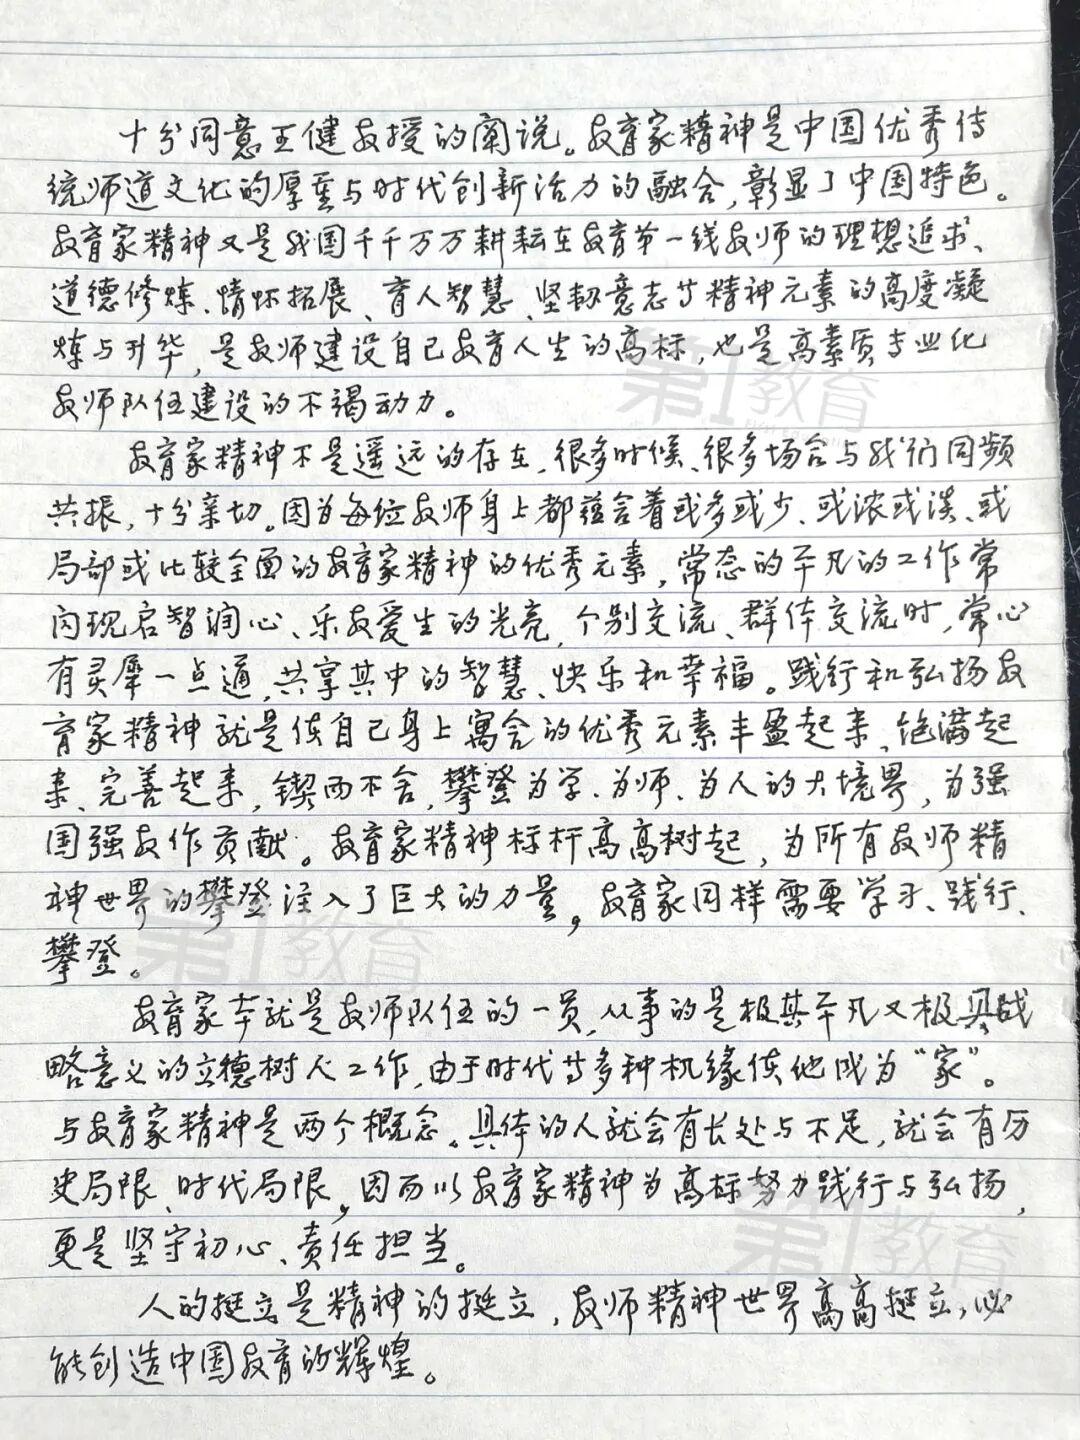 十分同意王健教授的阐说。教育家精神是中国优秀传
统师道文化的厚重与时代创新活力的融合，彰显了中国特色。
教育家精神又是我国千千万万耕耘在教育第一线教师的理想追求、
道德修炼、情怀拓展、育人智慧、坚韧意志等精神元素的高度凝
炼与升华，是教师建设自己教育人生的高标，也是高素质专业化
教师队伍建设的不竭动力。
教育家精神不是遥远的存在，很多时候、很多场合与我们同频
共振，十分亲切。因为每位教师身上都蕴含着或多或少、或浓或淡、或
局部或比较全面的教育家精神的优秀元素，常态的平凡的工作常
闪现启智润心、乐教爱生的光亮，个别交流、群体交流时，常心
有灵犀一点通，共享其中的智慧、快乐和幸福。践行和弘扬教
育家精神就是使自己身上寓含的优秀元素丰盈起来、饱满起
来、完善起来，锲而不舍，攀登为学、为师、为人的大境界，为强
国强教作贡献。教育家精神标杆高高树起，为所有教师精
神世界的攀登注入了巨大的力量，教育家同样需要学习、践行、
攀登。
教育家本就是教师队伍的一员，从事的是极其平凡又极具战
略意义的立德树人工作，由于时代等多种机缘使他成为“家”。
与教育家精神是两个概念。具体的人就会有长处与不足，就会有历
史局限、时代局限，因而以教育家精神为高标努力践行与弘扬，
更是坚守初心、责任担当。
人的挺立是精神的挺立，教师精神世界高高挺立，必
能创造中国教育的辉煌。
第1教育
第1教育
第1教育